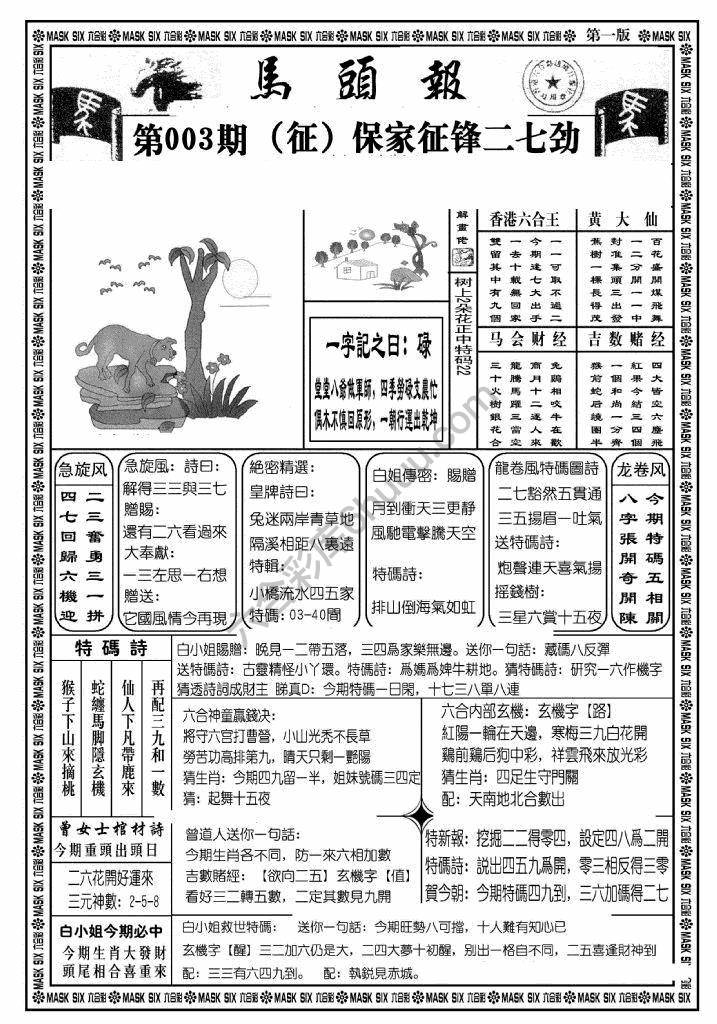 MASK SIX 六合彩
第一版
馬頭報
第003期（征）保家征锋二七劲
解畫佬
树上2朵花正中特码22
一字記之曰：碌
堂堂八爺做軍師，四季勞碌支農忙
俱木不慎回原形，一新行運出乾坤
香港六合王
一一可取不過二
今期逢七大出手
一去十載無回家
雙留其中有九個
黄大仙
百花盛開煤飛舞
一二分開一一中
對准集頭三出發
蕉樹一棵長得茂
马会财经
免鷄相咬牛在歡
商月十二逐人來
龍騰馬躍三當空
三十火樹銀花合
吉数赌经
四大皆空六塵飛
紅果今結三四個
一個和尚一分齊
猴前蛇后繞圈半
急旋风
二三奮勇三一拼
四七回歸六機迎
急旋風：詩曰：
解得三三與三七
贈賜：
還有二六看過來
大奉獻：
一三左思一右想
贈送：
它國風情今再現
絶密精選：
皇牌詩曰：
兔迷兩岸青草地
隔溪相距八裏遠
特輯：
小橋流水四五家
特碼：03-40間
白姐傳密：賜贈
月到衝天三更静
風馳電擊騰天空
特碼詩：
排山倒海氣如虹
龍卷風特碼圖詩
二七豁然五貫通
三五揚眉一吐氣
送特碼詩：
炮聲連天喜氣揚
摇錢樹：
三星六賞十五夜
龙卷风
今期特碼五相關
八字張開奇開陳
特碼詩
再配三九和一數
仙人下凡帶鹿來
蛇纏馬脚隱玄機
猴子下山來摘桃
白小姐賜贈：晚見一二帶五落，三四爲家樂無邊。送你一句話：藏碼八反彈
送特碼詩：古靈精怪小丫環。特碼詩：爲媽爲婢牛耕地。猜特碼詩：研究一六作機字
猜透詩詞成財主 睇真D：今期特碼一日閑，十七三八單八連
六合神童贏錢決：
將守六宫打曹營，小山光禿不長草
勞苦功高排第九，晴天只剩一艷陽
猜生肖：今期四九留一半，姐妹號碼三四定
猜：起舞十五夜
六合内部玄機：玄機字【路】
紅陽一輪在天邊，寒梅三九白花開
鷄前鷄后狗中彩，祥雲飛來放光彩
猜生肖：四足生守門關
配：天南地北合數出
曾女士棺材詩
今期重頭出頭日
二六花開好運來
三元神數：2-5-8
曾道人送你一句話：
今期生肖各不同，防一來六相加數
吉數賭經：【欲向二五】玄機字【值】
看好三二轉五數，二定其數見九開
特新報：挖掘二二得零四，設定四八爲二開
特碼詩：説出四五九爲開，零三相反得三零
賀今朝：今期特碼四九到，三六加碼得二七
白小姐今期必中
今期生肖大發財
頭尾相合喜重來
白小姐救世特碼： 送你一句話：今期旺勢八可擋，十人難有知心已
玄機字【醒】三二加六仍是大，二四大夢十初醒，别出一格自不同，二五喜逢財神到
配：三三有六四九到。 配：執鋭見赤城。
六合彩库6huuu.com